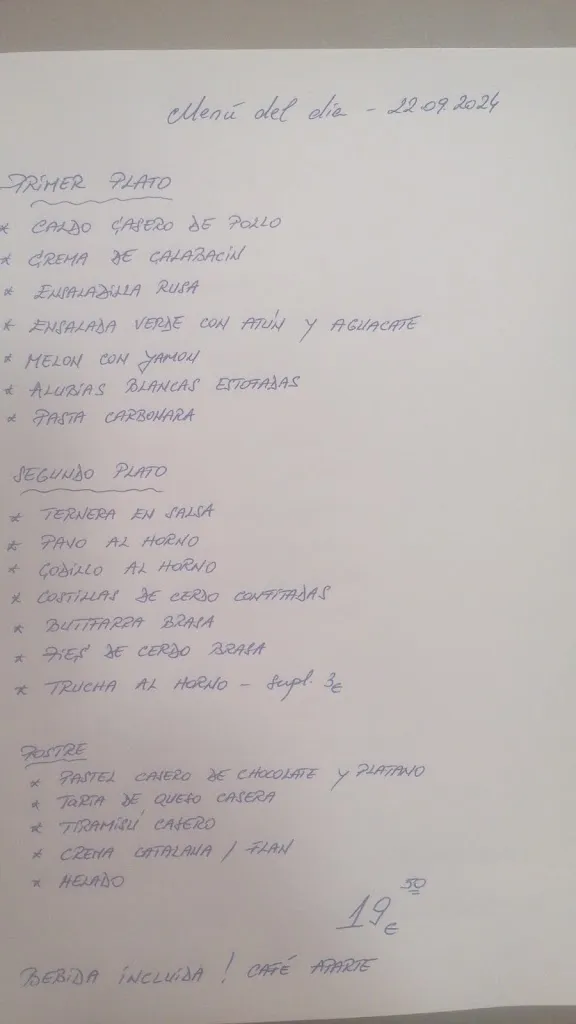 Menú del día - 22.09.2024
PRIMER PLATO
* CALDO CASERO DE POLLO
* CREMA DE CALABACÍN
* ENSALADILLA RUSA
* ENSALADA VERDE CON ATÚN Y AGUACATE
* MELON CON YAMON
* ALUBIAS BLANCAS ESTOFADAS
* PASTA CARBONARA
SEGUNDO PLATO
* TERNERA EN SALSA
* PAVO AL HORNO
* CODILLO AL HORNO
* COSTILLAS DE CERDO CONFITADAS
* BUTIFARRA BRASA
* PIES DE CERDO BRASA
* TRUCHA AL HORNO - supl. 3€
POSTRE
* PASTEL CASERO DE CHOCOLATE Y PLATANO
* TARTA DE QUESO CASERA
* TIRAMISÚ CASERO
* CREMA CATALANA / FLAN
* HELADO
19 50 €
BEBIDA INCLUIDA ! CAFÉ APARTE